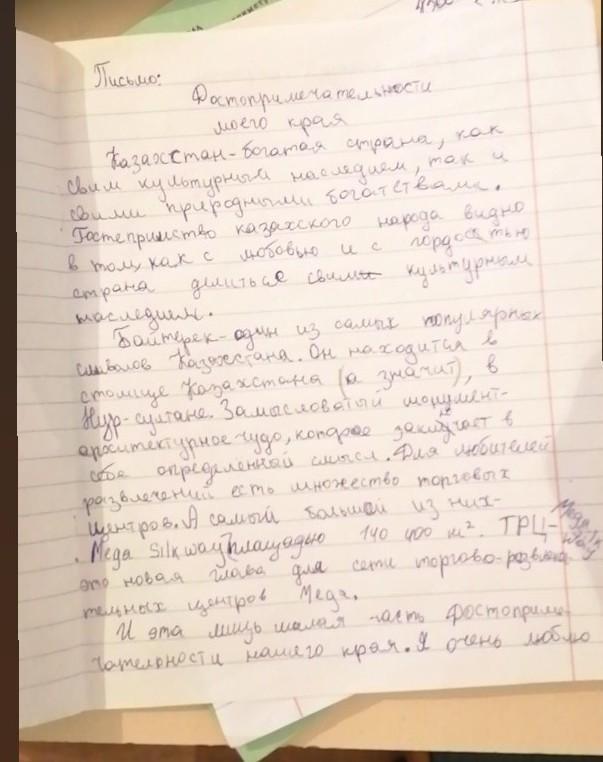 Письмо:
Достопримечательности
моего края
Казахстан-богатая страна, как
свим культурным наследием, так и
своими природными богатствами.
Гостеприимство казахского народа видно
в том, как с любовью и с гордостью
страна делиться свим культурным
наследием.
Байтерек-один из самых популярных
символов Казахстана. Он находится в
столице Казахстана (а значит), в
Нур-султане. Замысловатый монумент-
архитектурное чудо, которое заключает в
себе определённый смысл. Для любителей
развлечений есть множество торговых
центров. А самый большой из них-
Mega Silkway площадью 140 400 м². ТРЦ-
Mega
way
это новая глава для сети торгово-развлека
тельных центров Mega.
И эта лишь малая часть Достоприме-
чательности нашего края. Я очень люблю